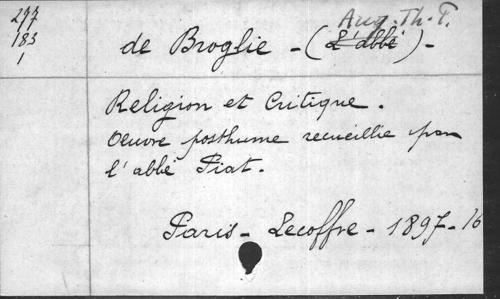 297
183
1
Aug. Th. P.
de Broglie - (L'abbé) -
Religion et Critique.
Oeuvre posthume recueillie par
l'abbé Piat.
Paris - Lecoffre - 1897 - 16